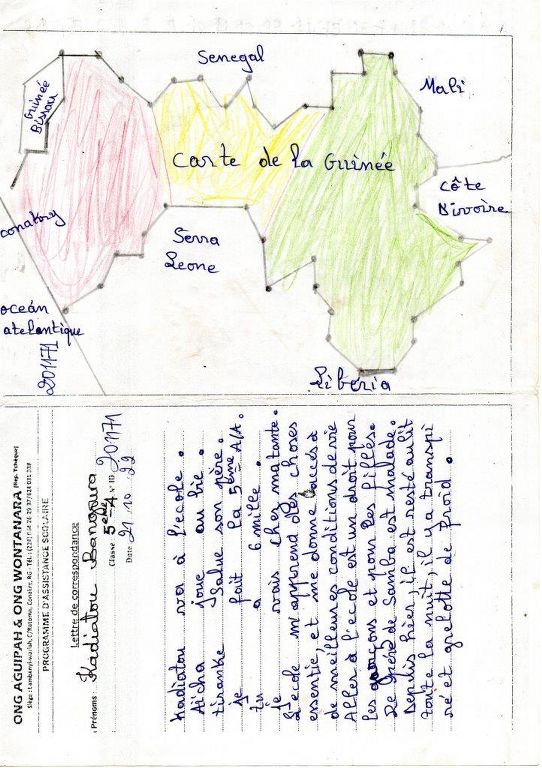 Senegal
Guinée
Bissau
Mali
Carte de la Guinée
Côte
Divoire
conakry
Serra
Leone
oceán
atelantique
201171
Liberia
ONG AGUIPAH & ONG WONTANARA
PROGRAMME D'ASSISTANCE SCOLAIRE
Lettre de correspondance
Prénoms Kadiatou Bangoura
Classe 5ème A. ID 201171
Date 21 10 22
Kadiatou va à l'ecole.
Aïcha joue au bie.
tiranke salue son père.
je fait la 5ème A/A.
tu a 6 mille.
je vais chez matante.
L'ecole m'apprend des choses
essentie, et me donne l'accés à
de meilleures conditions de vie
Aller à l'ecole est un droit pour
les garçons et pour les filles.
Le frére de Samba est malade.
Depuis hièr, il est resté au lit
toute la nuit, il y a transpi
ré et grelotte de froid.